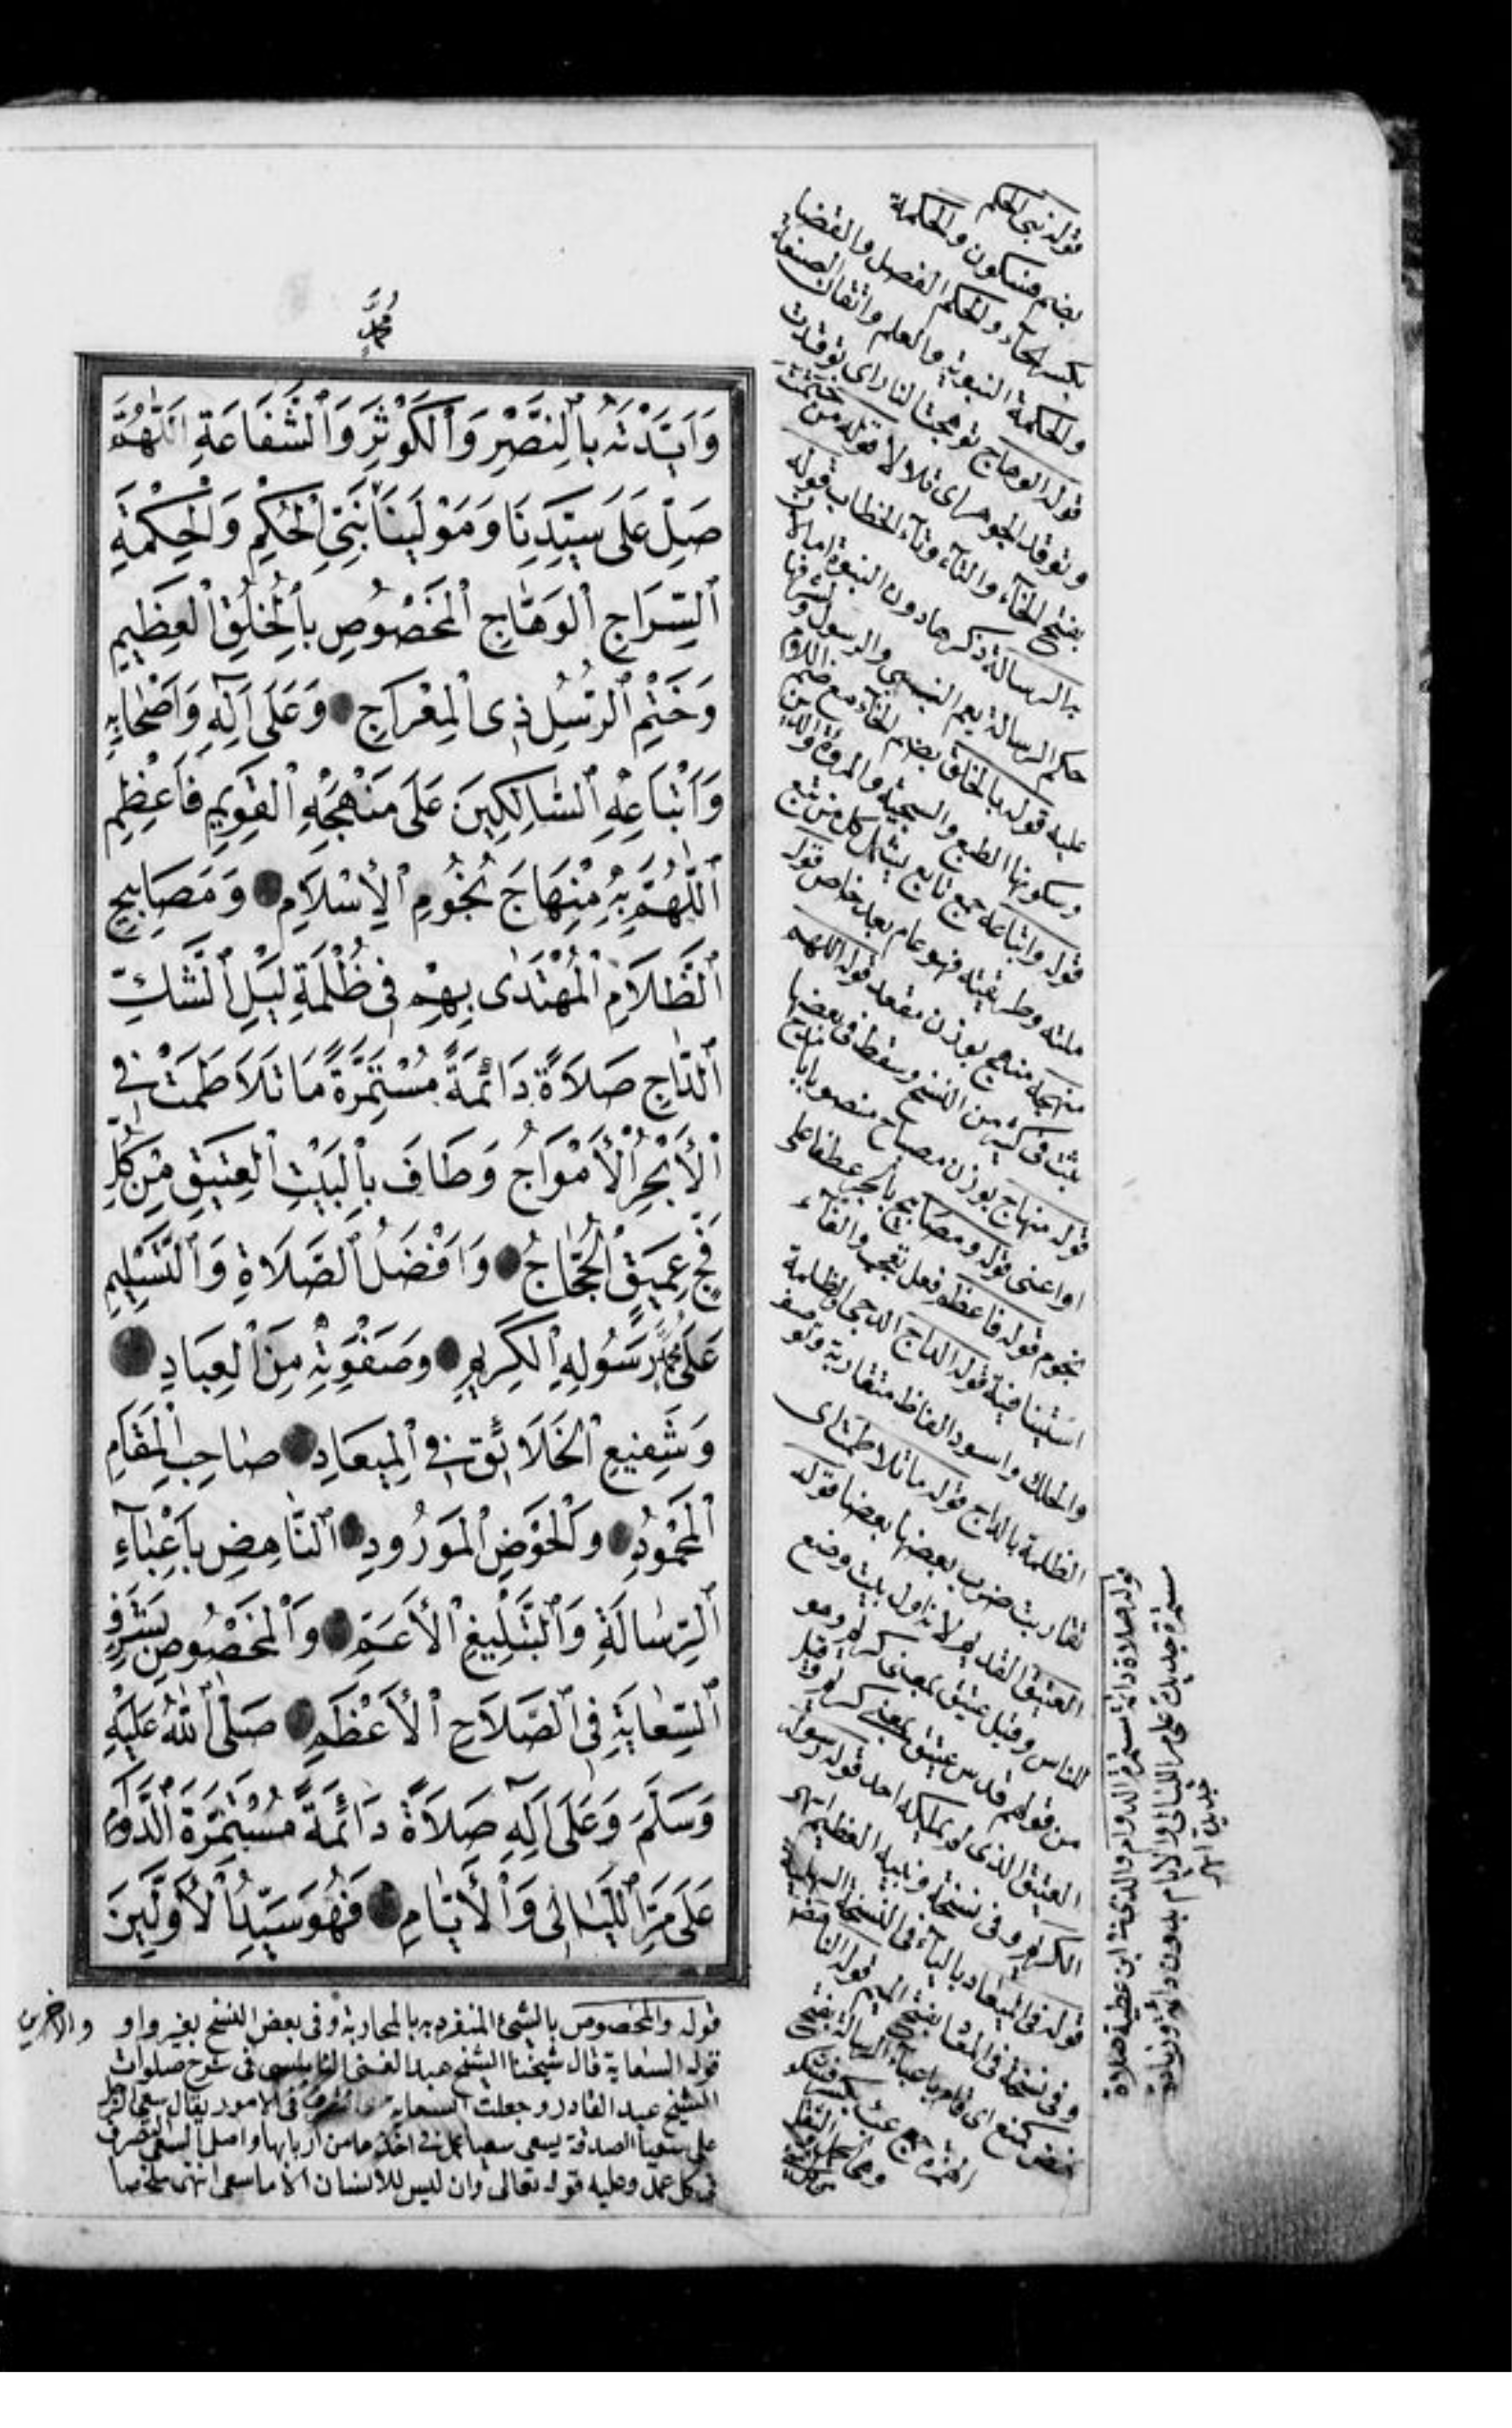 محمد
وَأَيَّدْتَهُ بِالنَّصْرِ وَالْكَوْثَرِ وَالشَّفَاعَةِ اَللّٰهُمَّ
صَلِّ عَلَى سَيِّدِنَا وَمَوْلٰينَا نَبِيِّ الْحُكْمِ وَالْحِكْمَةِ
السِّرَاجِ الْوَهَّاجِ الْمَخْصُوصِ بِالْخُلُقِ الْعَظِيمِ
وَخَتْمِ الرُّسُلِ ذِى الْمِعْرَاجِ وَعَلَى آلِهِ وَاَصْحَابِهِ
وَاَتْبَاعِهِ السَّالِكِينَ عَلَى مَنْهَجِهِ الْقَوِيمِ فَاَعْظِمِ
اللّٰهُمَّ بِهِ مِنْهَاجَ نُجُومِ الْاِسْلَامِ وَمَصَابِيحِ
الظَّلَامِ الْمُهْتَدٰى بِهِمْ فِى ظُلْمَةِ لَيْلِ الشَّكِّ
الدَّاجِ صَلَاةً دَائِمَةً مُسْتَمِرَّةً مَا تَلَاطَمَتْ فِى
الْأَبْحُرِ الْأَمْوَاجُ وَطَافَ بِالْبَيْتِ الْعَتِيقِ مِنْ كُلِّ
فَجٍّ عَمِيقٍ الْحُجَّاجُ وَاَفْضَلُ الصَّلَاةِ وَالتَّسْلِيمِ
عَلَى مُحَمَّدٍ رَسُولِهِ الْكَرِيمِ وَصَفْوَتِهِ مِنَ الْعِبَادِ
وَشَفِيعِ الْخَلَائِقِ فِى الْمِيعَادِ صَاحِبِ الْمَقَامِ
الْمَحْمُودِ وَالْحَوْضِ الْمَوْرُودِ النَّاهِضِ بِاَعْبَاءِ
الرِّسَالَةِ وَالتَّبْلِيغِ الْأَعَمِّ وَالْمَخْصُوصِ بِشَرَفِ
السِّعَايَةِ فِى الصَّلَاحِ الْأَعْظَمِ صَلَّى اللهُ عَلَيْهِ
وَسَلَّمَ وَعَلَى آلِهِ صَلَاةً دَائِمَةً مُسْتَمِرَّةَ الدَّوَامِ
عَلَى مَرِّ اللَّيَالِى وَالْأَيَّامِ فَهُوَ سَيِّدُ الْأَوَّلِينَ
والاخرين
قوله نبى الحكم
بضم فسكون والحكمة
بكسر الحآء والحكم الفصل والقضا
والحكمة النبوة والعلم واتقان الصنعة
قوله الوهاج توهجت النار اى توقدت
وتوقد الجوهر اى تلالأ قوله من ختمت
بفتح الخآء والتآء وتآء الخطاب قوله
به الرسالة ذكرها دون النبوة اما لان
حكم الرسالة يعم النبى والرسول
عليه قوله بالخلق بضم الخآء مع ضم اللام
وسكونها الطبع والسجية والمروة والدين
قوله واتباعه جمع تابع يشمل كل من تبع
ملته وطريقته فهو عام بعد خاص قوله
منهجه منهج بوزن مقعد قوله اللهم
ثبت فى كثير من النسخ وسقط فى بعضها
قوله منهاج بوزن مصباح منصوبا
او اعنى قوله ومصابيح بالجر عطفا على
نجوم قوله فاعظم فعل تعجب والفآء
استينافية قوله الداج الدجى الظلمة
والحالك واسود الفاظ متقاربة
الظلمة بالداج قوله ما تلاطمت اى
تقاربت ضرب بعضها بعضا قوله
العتيق القديم لانه اول بيت وضع
للناس وقيل عتيق بمعنى كريم وهو
من قولهم فرس عتيق بمعنى كريم وقيل
العتيق الذى لم يملكه احد قوله رسوله
الكريم وفى نسخة ونبيه العظيم
قوله فى الميعاد باليآء فى النسخة السهلية
وفى نسخة فى المعاد بفتح الميم قوله الناهض
اى قام باعبآء الرسالة بفتح
الهمزة جمع عبء بكسر فسكون
قوله صلاة دائمة مستمرة الدوام والذى عند ابن عطية صلاة
مستمرة جديدة على مر الليالى والايام بدون دائمة وزيادة
جديدة انتهى
قوله والمخصوص بالشىء المنفرد به بالمحاربة وفى بعض النسخ بغير واو
قوله السعاية قال شيخنا الشيخ عبد الغنى النابلسى فى شرح صلوات
الشيخ عبد القادر وجعلت السعاية فى الامور يقال سعى الرجل
على الصدقة يسعى سعيا عمل فى اخذها من اربابها واصل السعى التصرف
فى كل عمل وعليه قوله تعالى وان ليس للانسان الا ما سعى انتهى ملخصا